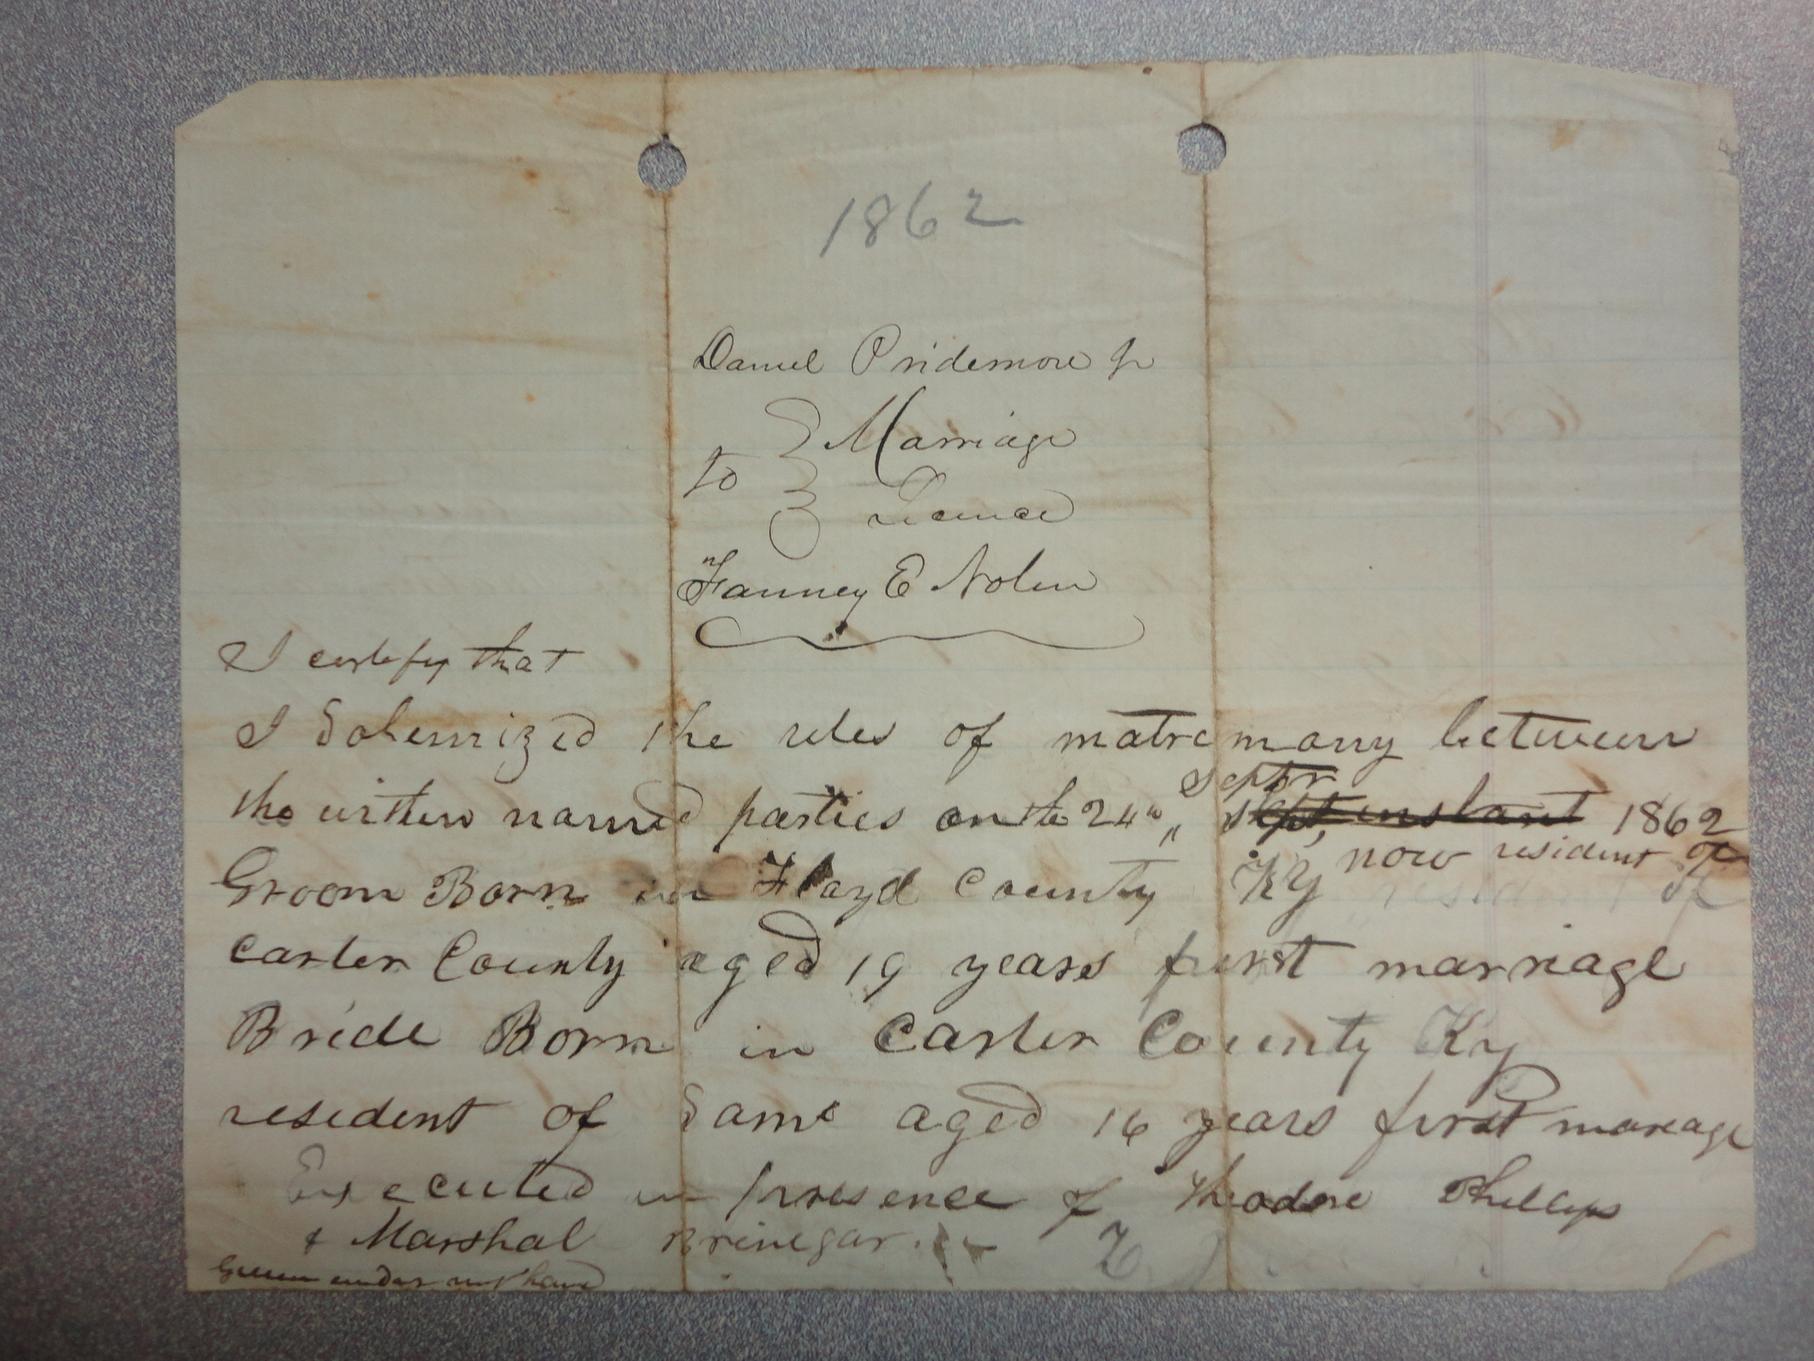 1862
Daniel Pridemore Jr
Marriage
to
Licence
Fanney E Nolen
I certify that
I Solemnized the rites of matrimony between
Septbr
the within named parties on the 24th " Sept, instant 1862
now resident of
Groom Born in Floyd County Ky resident of
Carter County aged 19 years first marriage
Bride Born in Carter County Ky
resident of Same aged 16 years first marage
Executed in presence of Theodore Phillips
& Marshal Brinegar.
Given under my hand